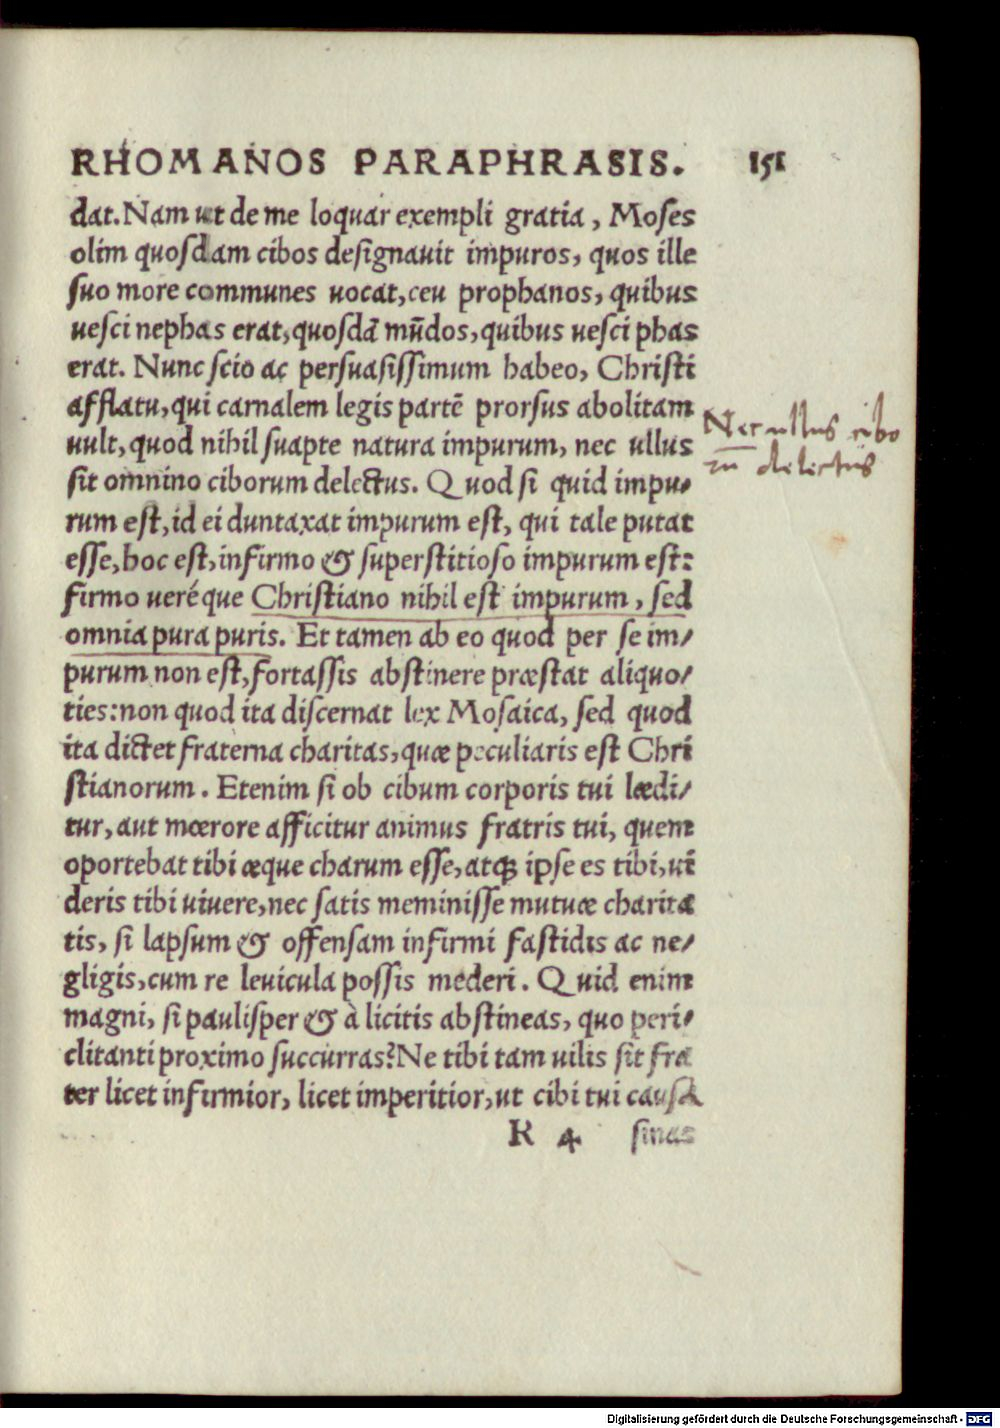 RHOMANOS PARAPHRASIS. 151
dat. Nam ut de me loquar exempli gratia, Moses
olim quosdam cibos designauit impuros, quos ille
suo more communes uocat, ceu prophanos, quibus
uesci nephas erat, quosdā mūdos, quibus uesci phas
erat. Nunc scio ac persuasissimum habeo, Christi
afflatu, qui carnalem legis partē prorsus abolitam
uult, quod nihil suapte natura impurum, nec ullus
sit omnino ciborum delectus. Quod si quid impu-
rum est, id ei duntaxat impurum est, qui tale putat
esse, hoc est, infirmo & superstitioso impurum est:
firmo ueréque Christiano nihil est impurum, sed
omnia pura puris. Et tamen ab eo quod per se im-
purum non est, fortassis abstinere præstat aliquo-
ties: non quod ita discernat lex Mosaica, sed quod
ita dictet fraterna charitas, quæ peculiaris est Chri
stianorum. Etenim si ob cibum corporis tui lædi-
tur, aut mœrore afficitur animus fratris tui, quem
oportebat tibi æque charum esse, atq; ipse es tibi, ui
deris tibi uiuere, nec satis meminisse mutuæ charita
tis, si lapsum & offensam infirmi fastidis ac ne-
gligis, cum re leuicula possis mederi. Quid enim
magni, si paulisper & à licitis abstineas, quo peri-
clitanti proximo succurras? Ne tibi tam uilis sit fra
ter licet infirmior, licet imperitior, ut cibi tui causa
R 4 sinas
Nec ullus cibo
rū delectus
Digitalisierung gefördert durch die Deutsche Forschungsgemeinschaft - DFG